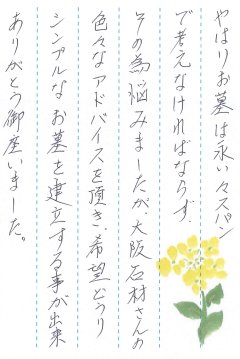 やはりお墓は永い々スパン
で考えなければならず、
その為悩みましたが、大阪石材さんの
色々なアドバイスを頂き、希望どうり
シンプルなお墓を建立する事が出来
ありがとう御座いました。